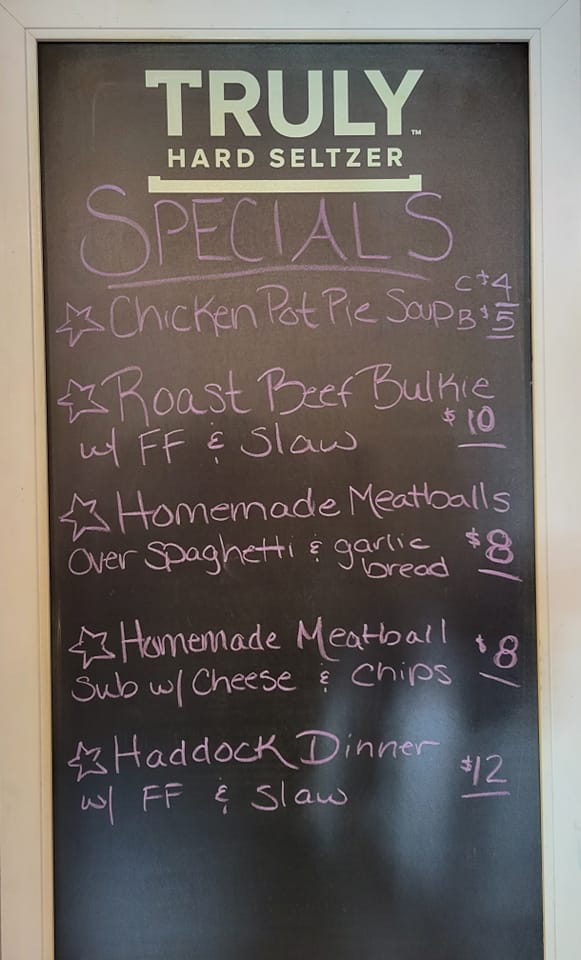 TRULY™
HARD SELTZER
SPECIALS
☆ Chicken Pot Pie Soup C $4
B $5
☆ Roast Beef Bulkie
w/ FF & Slaw $10
☆ Homemade Meatballs
over spaghetti & garlic $8
bread
☆ Homemade Meatball $8
Sub w/ Cheese & Chips
☆ Haddock Dinner $12
w/ FF & Slaw